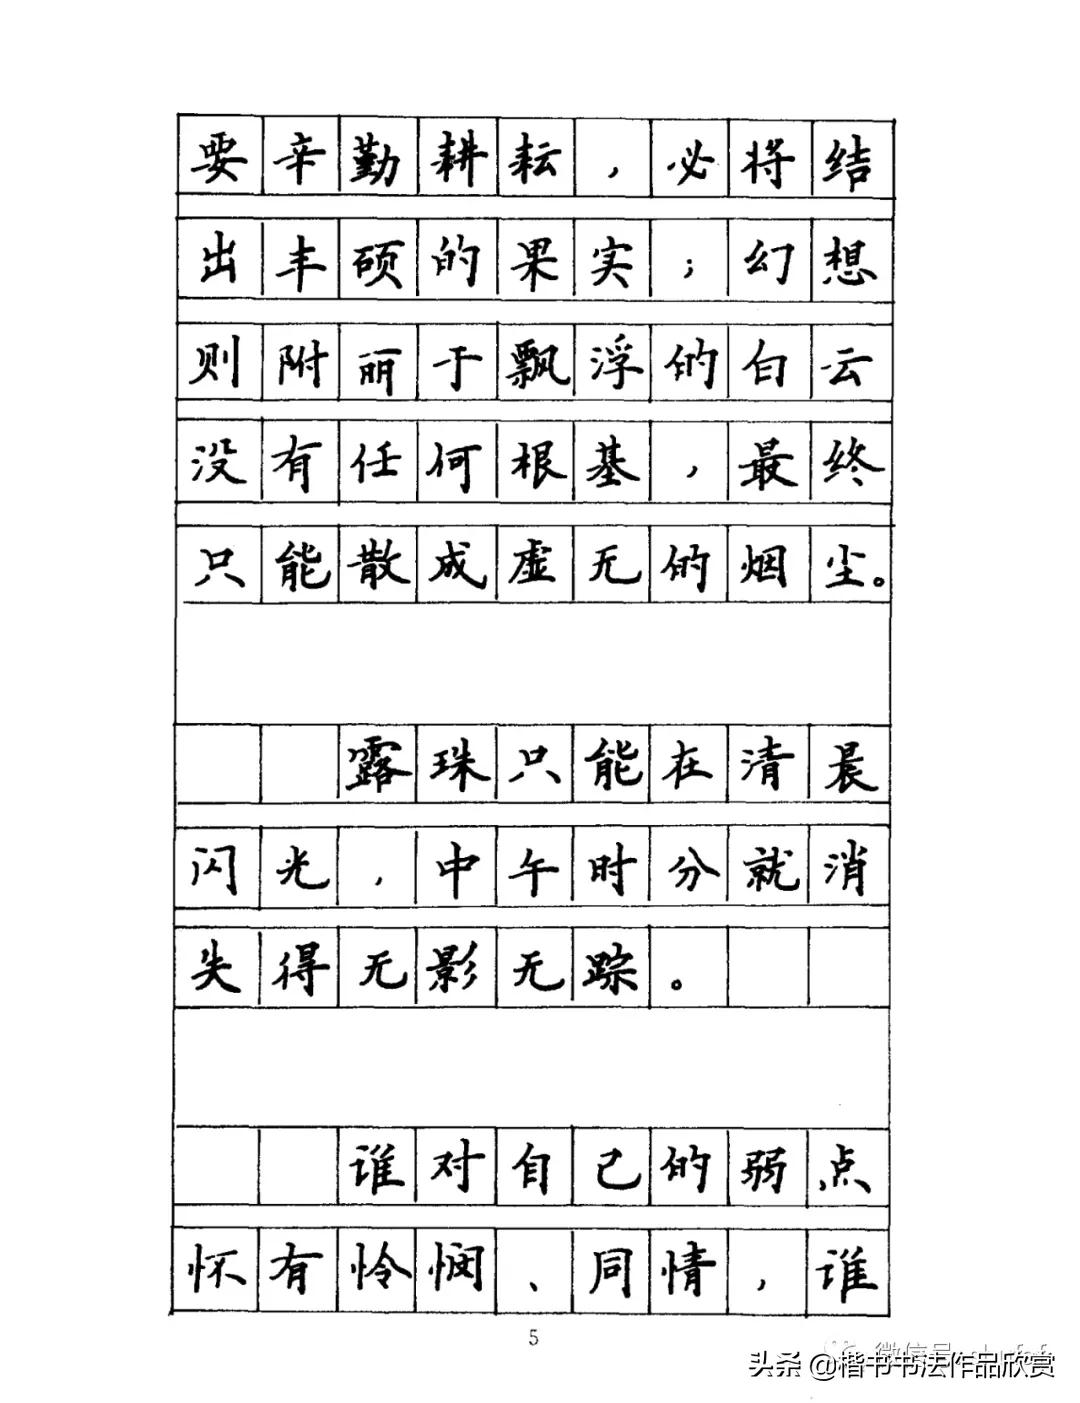 要辛勤耕耘，必将结
出丰硕的果实；幻想
则附丽于飘浮的白云
没有任何根基，最终
只能散成虚无的烟尘。
露珠只能在清晨
闪光，中午时分就消
失得无影无踪。
谁对自己的弱点
怀有怜悯、同情，谁
5
微信号
头条 @楷书书法作品欣赏